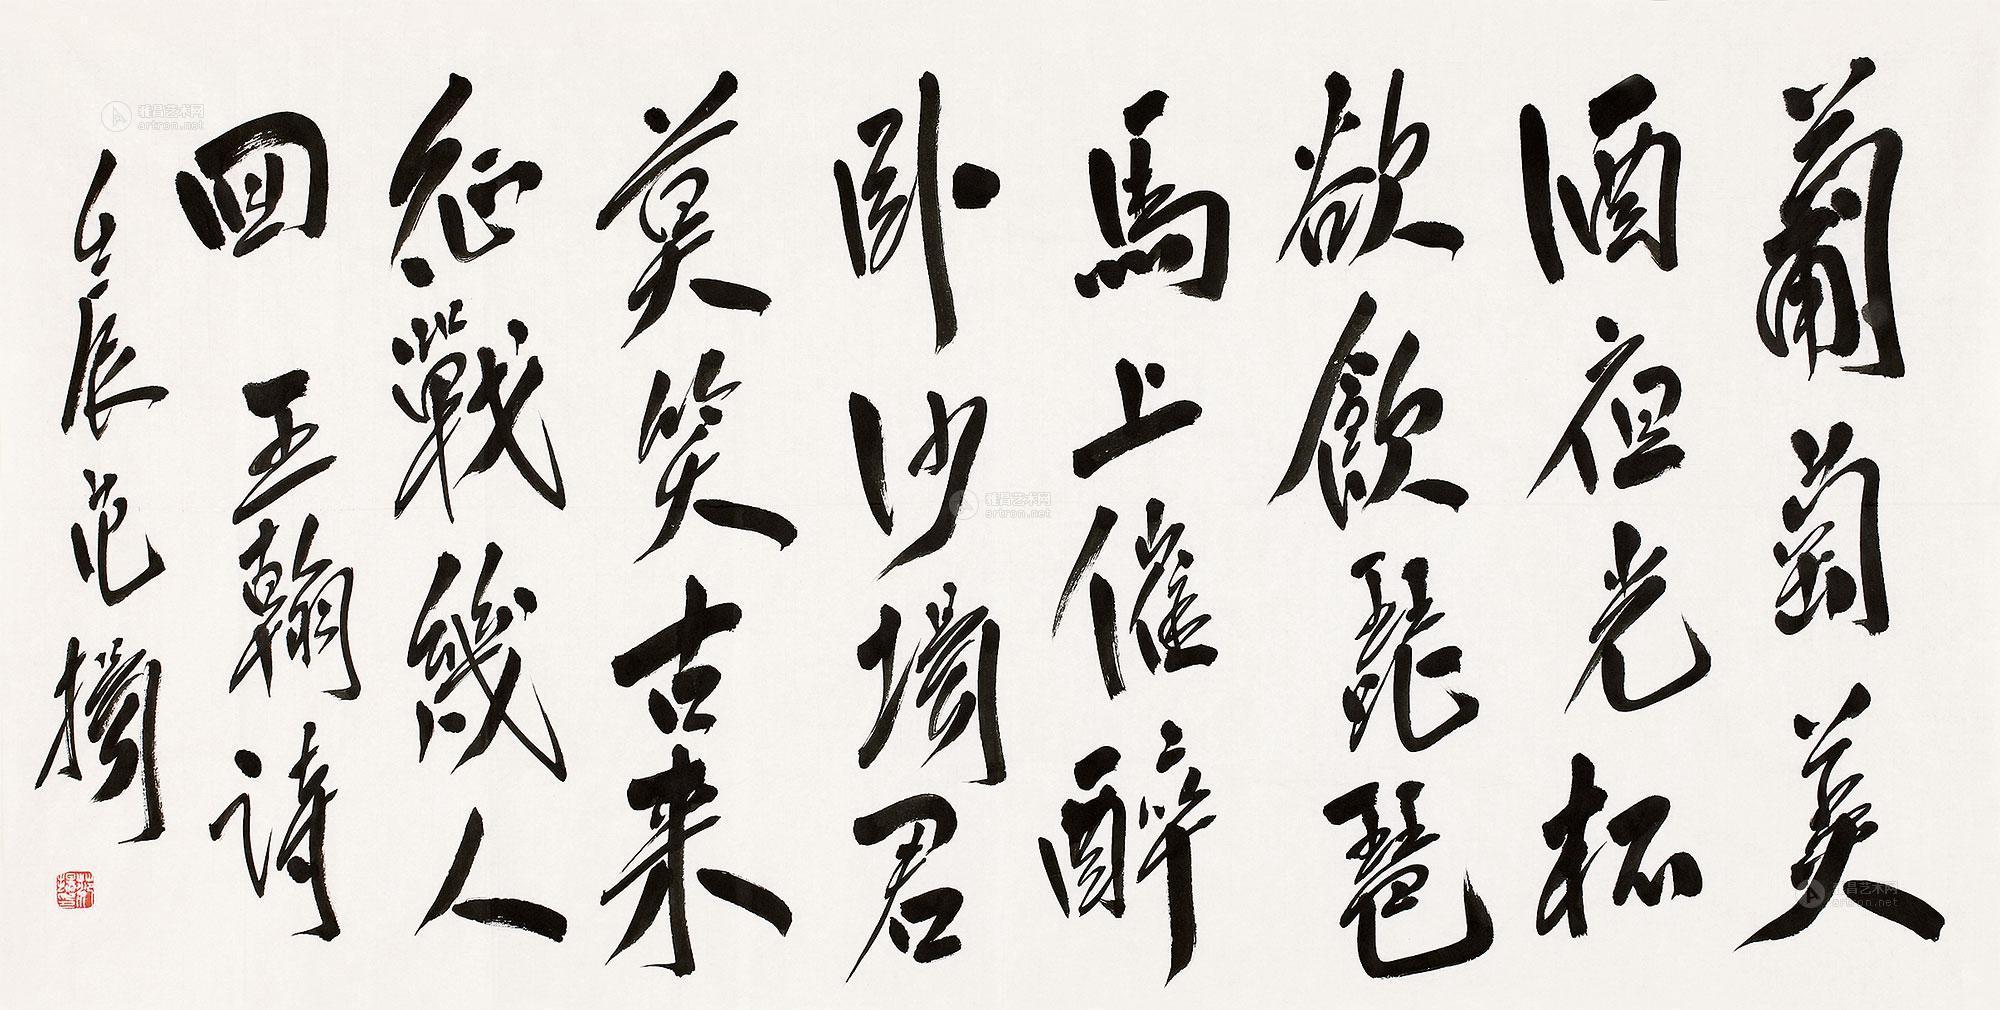 葡萄美
酒夜光杯
欲飲琵琶
馬上催醉
卧沙場君
莫笑古来
征戰幾人
回 王翰詩
壬辰范揚
雅昌艺术网
artron.net
雅昌艺术网
artron.net
雅昌艺术网
artron.net